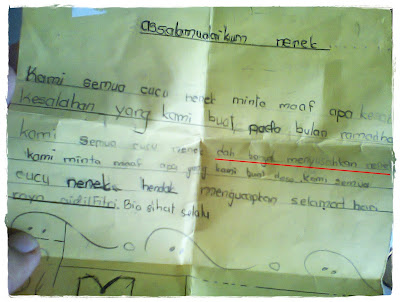 assalamualaikum nenek
Kami semua cucu nenek minta maaf apa
kesalahan yang kami buat pada bulan ramadha
kami semua cucu nenek dah banyak menyusahkan nenek
kami minta maaf apa yang kami buat dosa. Kami semua
cucu nenek hendak mengucapkan selamat hari
raya aidilfitri. Bia sihat selalu